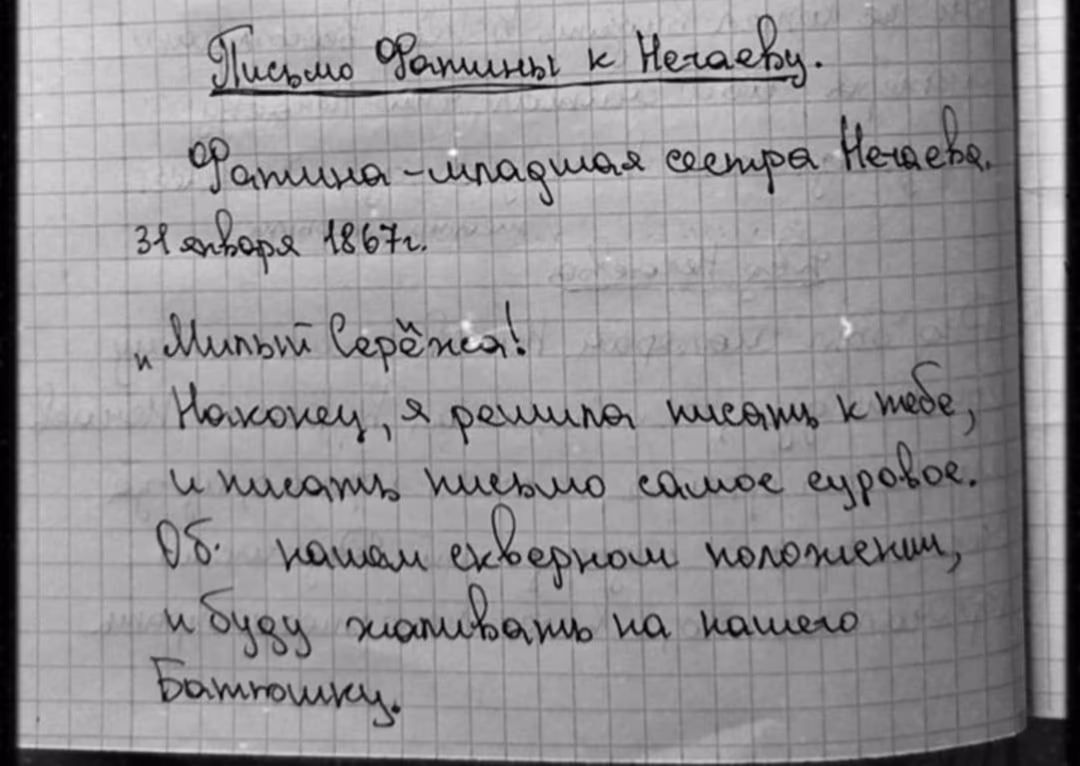 Письмо Фатины к Нечаеву.
Фатина - младшая сестра Нечаева.
31 января 1867г.
"Милый Серёжа!
Наконец, я решила писать к тебе,
и писать письмо самое суровое.
Об. нашем скверном положении,
и буду жаливать на нашего
Батюшку.